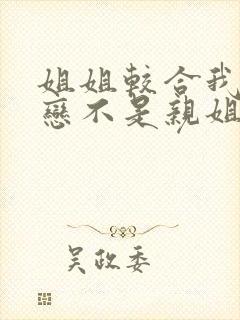 姐姐較合我
戀不是親姐
吴政委